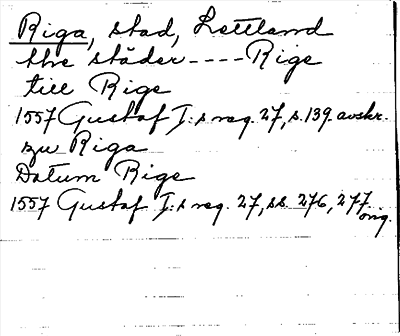 Riga, stad, Lettland
thre städer ---- Rige
till Rige
1557 Gustaf I:s reg. 27, s. 139. avskr.
zu Riga
Datum Rige
1557 Gustaf I:s reg. 27, ss. 276, 277 orig.